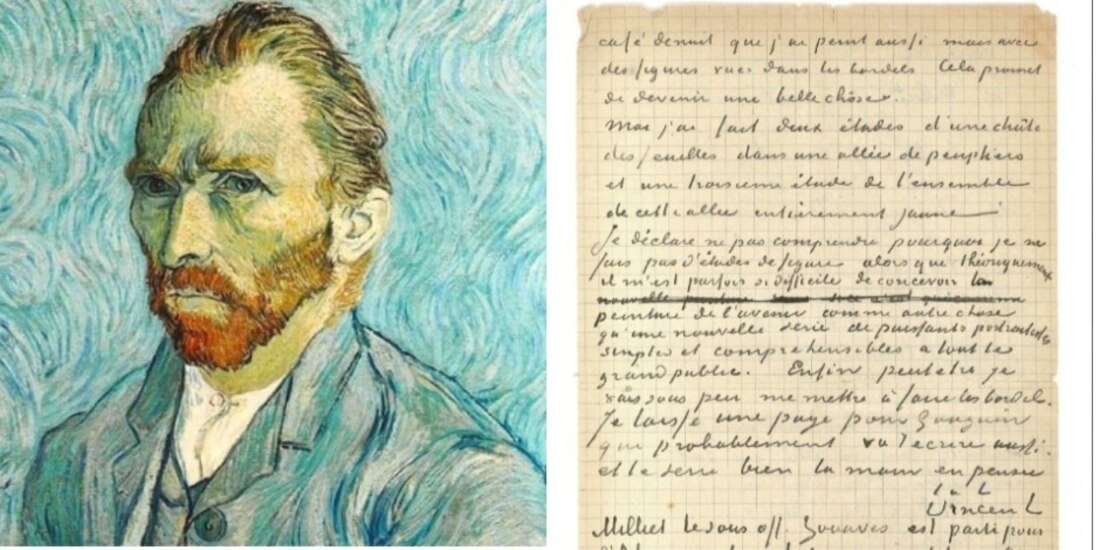 café de nuit que j'ai peint aussi mais avec
des figures vues dans les bordels Cela promet
de devenir une belle chôse.
Moi j'ai fait deux études d'une chûte
des feuilles dans une allée de peupliers
et une troisieme étude de l'ensemble
de cette allee entièrement jaune
Je déclare ne pas comprendre pourquoi je ne
fais pas d'études de figure alors que théoriquement
il m'est parfois si difficile de concevoir la
peinture de l'avenir comme autre chose
qu'une nouvelle serie de puissants portraitistes
simples et comprehensibles a tout le
grand public. Enfin peutetre je
vais sous peu me mettre à faire les bordels.
Je laisse une page pour Gauguin
qui probablement va t'ecrire aussi
et te serre bien la main en pensée
t. à t.
Vincent
Milliet le sous off. Zouaves est parti pour